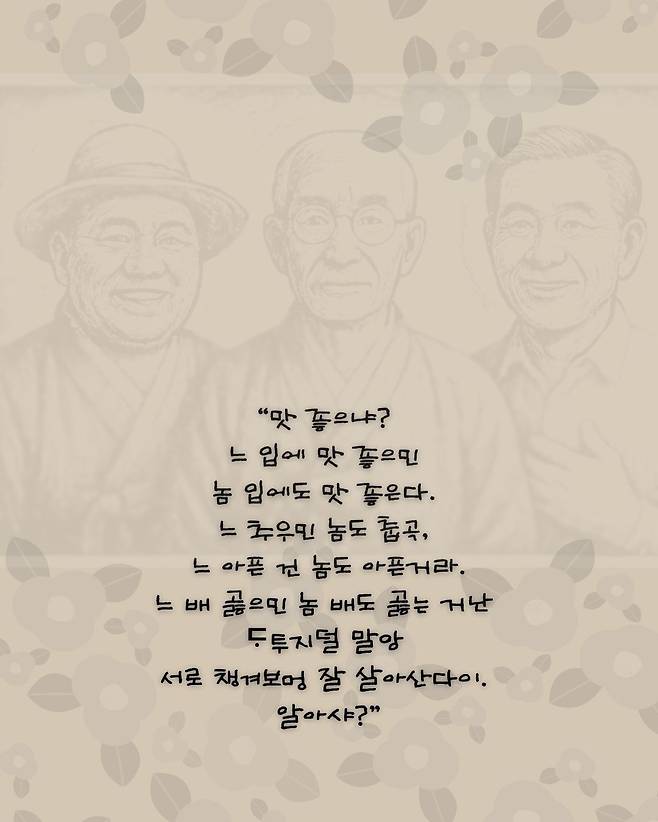 “맛 좋으냐?
느 입에 맛 좋으민
놈 입에도 맛 좋은다.
느 추우민 놈도 춥곡,
느 아픈 건 놈도 아픈거라.
느 배 곯으민 놈 배도 곯는 거난
ᄃᆞ투지덜 말앙
서로 챙겨보멍 잘 살아산다이.
알아샤?”